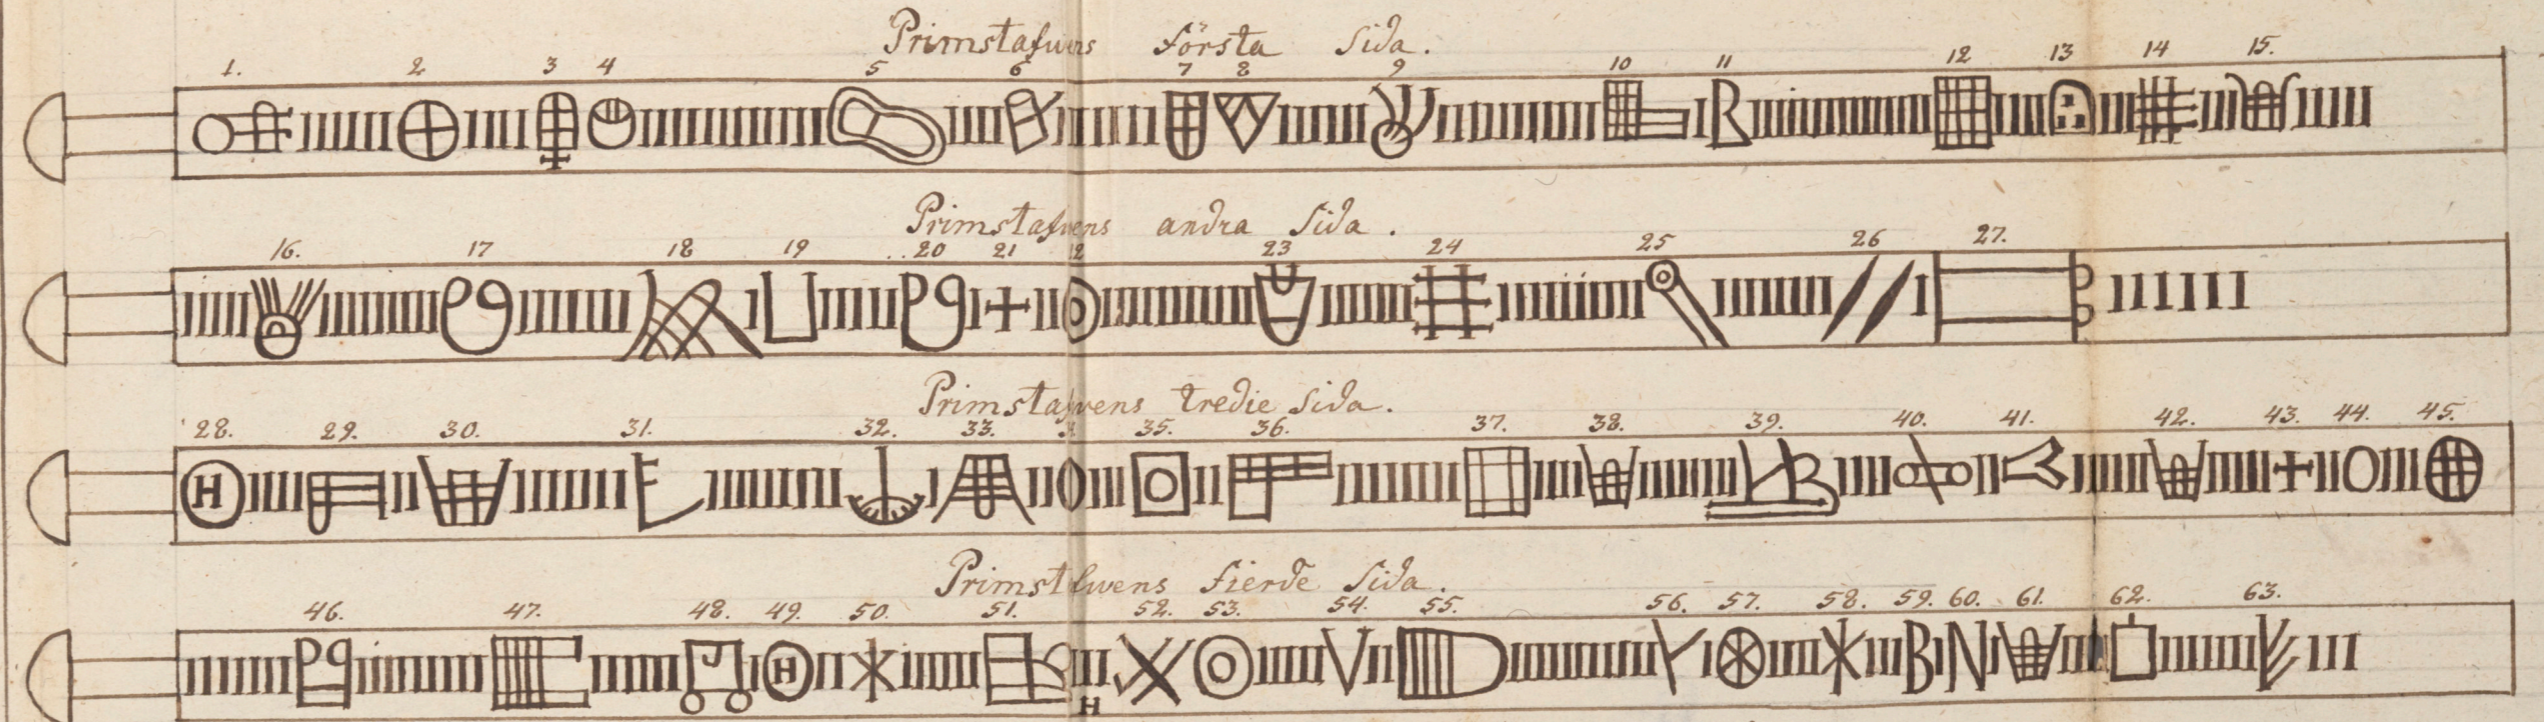 Primstafwens första Sida.
1. 2 3 4 5 6 7 8 9 10 11 12 13 14 15.
Primstafwens andra Sida.
16. 17 18 19 20 21 23 24 25 26 27.
Primstafwens tredie Sida.
28. 29. 30. 31. 32. 33. 35. 36. 37. 38. 39. 40. 41. 42. 43. 44. 45.
H
Primstafwens fierde Sida.
46. 47. 48. 49. 50. 51. 52. 53. 54. 55. 56. 57. 58. 59. 60. 61. 62. 63.
H B N
H